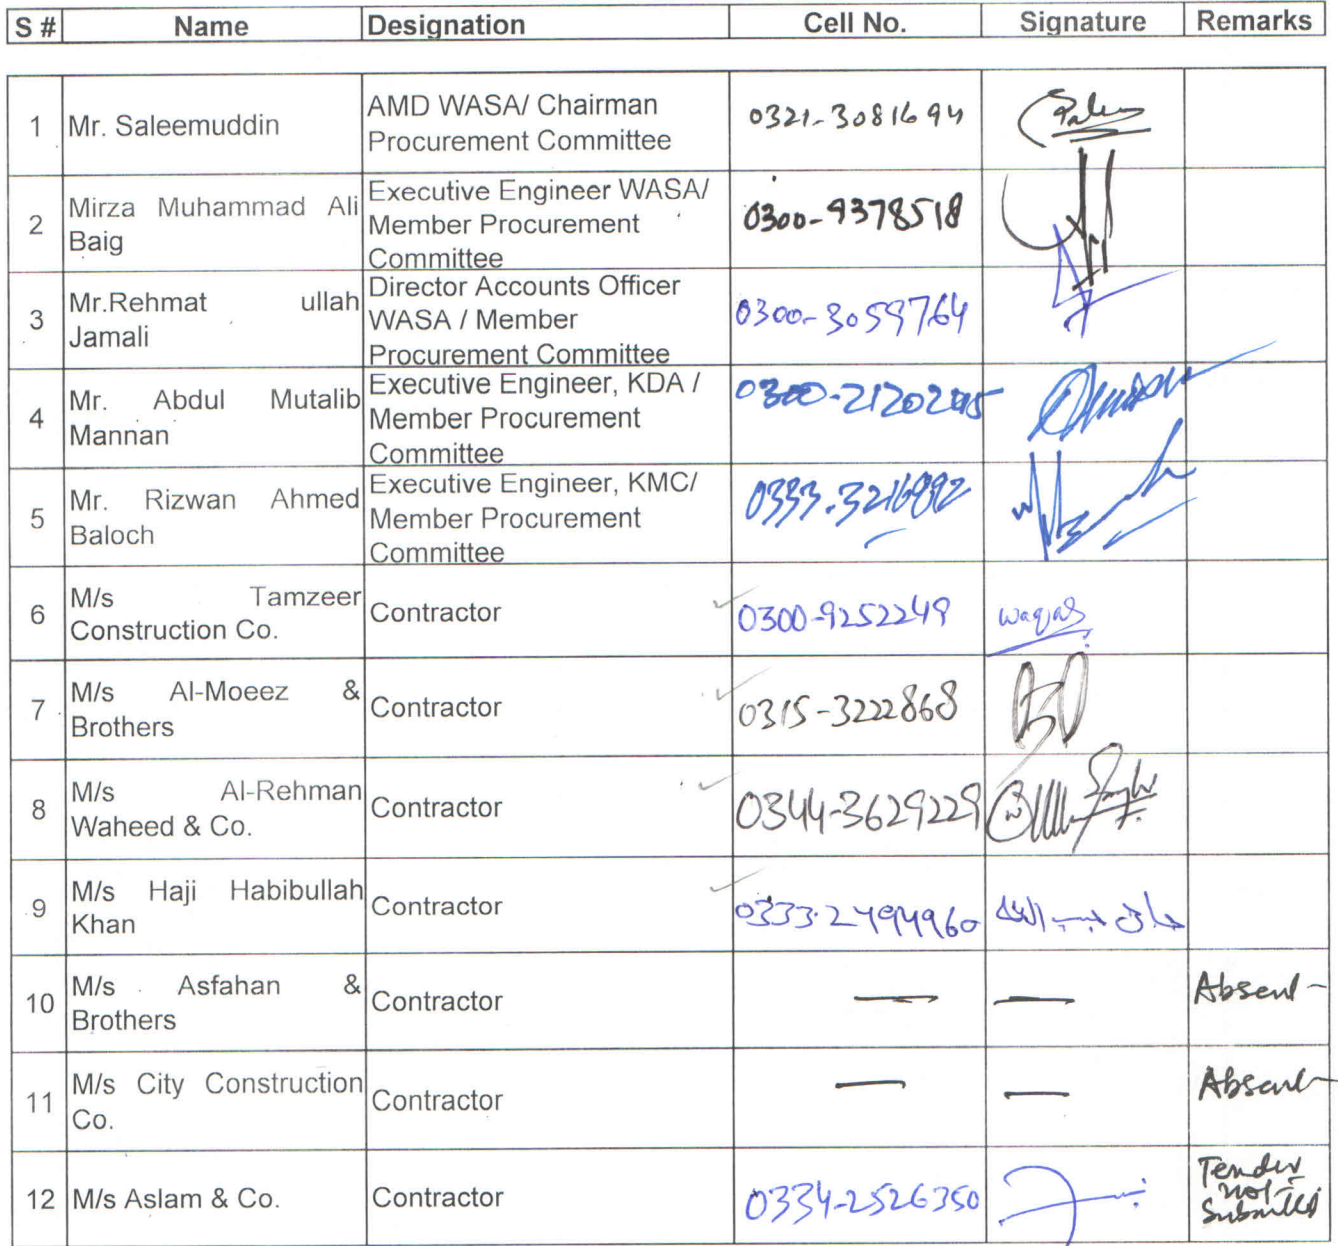 S # Name Designation Cell No. Signature Remarks
1 Mr. Saleemuddin AMD WASA/ Chairman
Procurement Committee 0321-3081694
2 Mirza Muhammad Ali
Baig Executive Engineer WASA/
Member Procurement
Committee 0300-9378518
3 Mr.Rehmat ullah
Jamali Director Accounts Officer
WASA / Member
Procurement Committee 0300-3059764
4 Mr. Abdul Mutalib
Mannan Executive Engineer, KDA /
Member Procurement
Committee
5 Mr. Rizwan Ahmed
Baloch Executive Engineer, KMC/
Member Procurement
Committee
6 M/s Tamzeer
Construction Co. Contractor 0300-9252249 Waqas
7 M/s Al-Moeez &
Brothers Contractor 0315-3222868
8 M/s Al-Rehman
Waheed & Co. Contractor 0344-3629229
9 M/s Haji Habibullah
Khan Contractor 0333-2494960 حاجی حبیب اللہ
10 M/s Asfahan &
Brothers Contractor — — Absent
11 M/s City Construction
Co. Contractor — — Absent
12 M/s Aslam & Co. Contractor 0334-2526350 Tender
not
Submitted